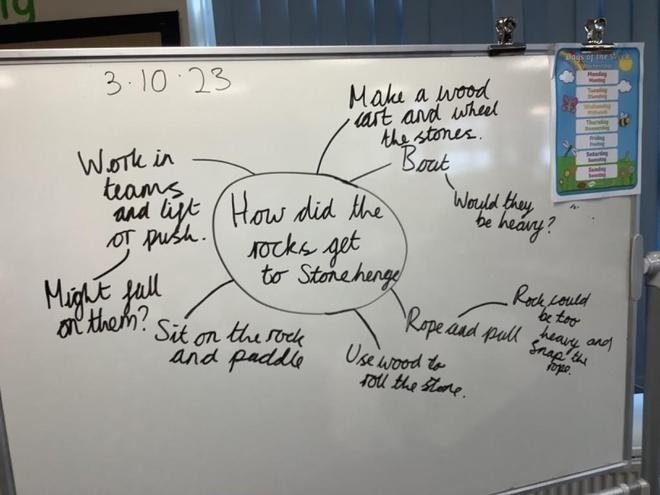 3.10.23
Make a wood
cart and wheel
the stones.
Boat
Would they
be heavy?
Work in
teams
and lift
or push.
Might fall
on them?
How did the
rocks get
to Stonehenge
Sit on the rock
and paddle
Use wood to
roll the stone.
Rope and pull
Rock could
be too
heavy and
snap the
rope.
Days of the Week
Monday
Montag
Tuesday
Dienstag
Wednesday
Mittwoch
Thursday
Donnerstag
Friday
Freitag
Saturday
Samstag
Sunday
Sonntag